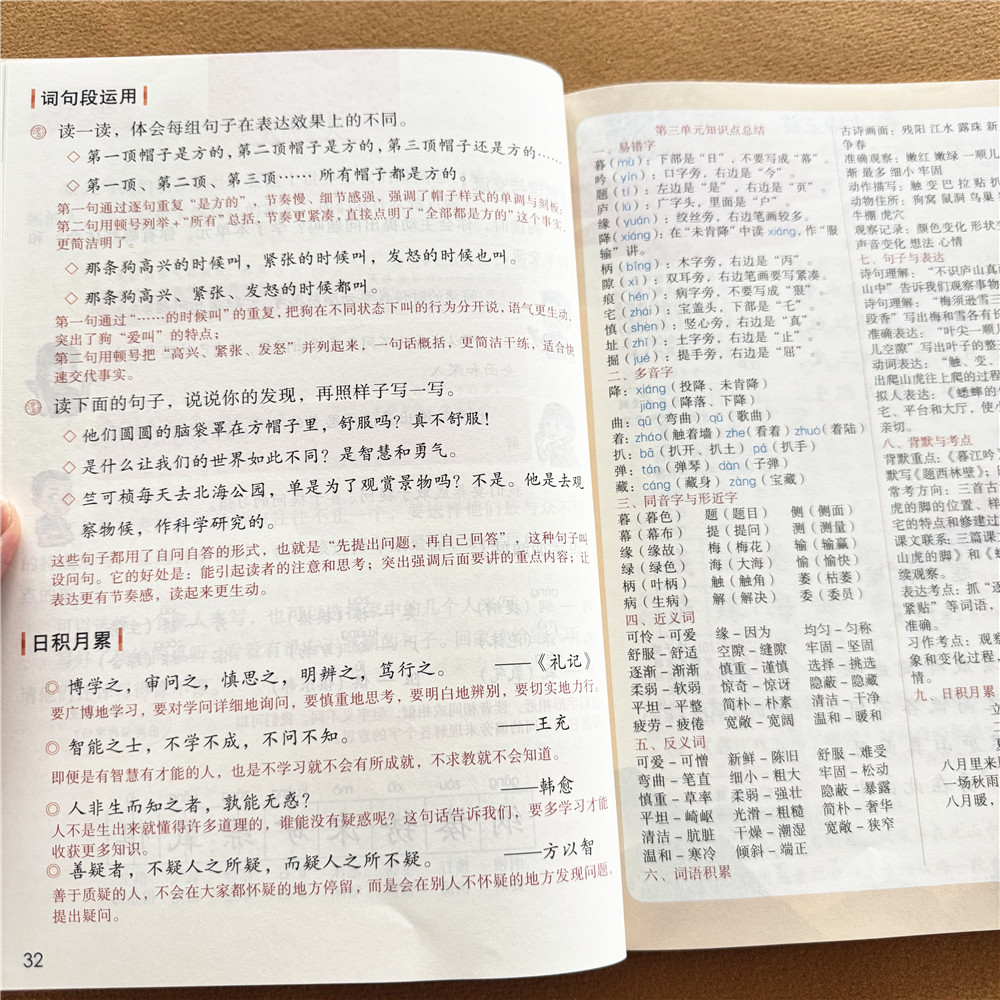 词句段运用
读一读，体会每组句子在表达效果上的不同。
◇ 第一顶帽子是方的，第二顶帽子是方的，第三顶帽子还是方的……
◇ 第一顶、第二顶、第三顶……所有帽子都是方的。
第一句通过逐句重复“是方的”，节奏慢、细节感强，强调了帽子样式的单调与刻板；
第二句用顿号列举+“所有”总括，节奏更紧凑，直接点明了“全部都是方的”这个事实，
更简洁明了。
◇ 那条狗高兴的时候叫，紧张的时候叫，发怒的时候也叫。
◇ 那条狗高兴、紧张、发怒的时候都叫。
第一句通过“……的时候叫”的重复，把狗在不同状态下叫的行为分开说，语气更生动，
突出了狗“爱叫”的特点；
第二句用顿号把“高兴、紧张、发怒”并列起来，一句话概括，更简洁干练，适合快
速交代事实。
读下面的句子，说说你的发现，再照样子写一写。
◇ 他们圆圆的脑袋罩在方帽子里，舒服吗？真不舒服！
◇ 是什么让我们的世界如此不同？是智慧和勇气。
◇ 竺可桢每天去北海公园，单是为了观赏景物吗？不是。他是去观
察物候，作科学研究的。
这些句子都用了自问自答的形式，也就是“先提出问题，再自己回答”，这种句子叫
设问句。它的好处是：能引起读者的注意和思考；突出强调后面要讲的重点内容；让
表达更有节奏感，读起来更生动。
日积月累
◎ 博学之，审问之，慎思之，明辨之，笃行之。 ——《礼记》
要广博地学习，要对学问详细地询问，要慎重地思考，要明白地辨别，要切实地力行。
◎ 智能之士，不学不成，不问不知。 ——王充
即便是有智慧有才能的人，也是不学习就不会有所成就，不求教就不会知道。
◎ 人非生而知之者，孰能无惑？ ——韩愈
人不是生出来就懂得许多道理的，谁能没有疑惑呢？这句话告诉我们，要多学习才能
收获更多知识。
◎ 善疑者，不疑人之所疑，而疑人之所不疑。 ——方以智
善于质疑的人，不会在大家都怀疑的地方停留，而是会在别人不怀疑的地方发现问题，
提出疑问。
32
第三单元知识点总结
一、易错字
暮（mù）：下部是“日”，不要写成“幕”。
吟（yín）：口字旁，右边是“今”。
题（tí）：左边是“是”，右边是“页”。
庐（lú）：广字头，里面是“户”。
缘（yuán）：绞丝旁，右边笔画较多。
降（xiáng）：在“未肯降”中读 xiáng，作“服
输”讲。
柄（bǐng）：木字旁，右边是“丙”。
隙（xì）：双耳旁，右边笔画要写紧凑。
痕（hén）：病字旁，不要写成“狠”。
宅（zhái）：宝盖头，下部是“乇”。
慎（shèn）：竖心旁，右边是“真”。
址（zhǐ）：土字旁，右边是“止”。
掘（jué）：提手旁，右边是“屈”。
二、多音字
降：xiáng（投降、未肯降）
jiàng（降落、下降）
曲：qū（弯曲）qǔ（歌曲）
着：zháo（触着墙）zhe（看着）zhuó（着陆）
扒：bā（扒开、扒土）pá（扒手）
弹：tán（弹琴）dàn（子弹）
藏：cáng（藏身）zàng（宝藏）
三、同音字与形近字
暮（暮色） 题（题目） 侧（侧面）
幕（幕布） 提（提问） 测（测量）
缘（缘故） 梅（梅花） 输（输赢）
绿（绿色） 海（大海） 愉（愉快）
柄（叶柄） 触（触角） 萎（枯萎）
病（生病） 解（解决） 委（委员）
四、近义词
可怜－可爱 缘－因为 均匀－匀称
舒服－舒适 空隙－缝隙 牢固－坚固
逐渐－渐渐 慎重－谨慎 选择－挑选
柔弱－软弱 惊奇－惊讶 隐蔽－隐藏
平坦－平整 简朴－朴素 清洁－干净
疲劳－疲倦 宽敞－宽阔 温和－暖和
五、反义词
可爱－可憎 新鲜－陈旧 舒服－难受
弯曲－笔直 细小－粗大 牢固－松动
慎重－草率 柔弱－强壮 隐蔽－暴露
平坦－崎岖 光滑－粗糙 简朴－奢华
清洁－肮脏 干燥－潮湿 宽敞－狭窄
温和－寒冷 倾斜－端正
六、词语积累
古诗画面：残阳 江水 露珠 新
争春
准确观察：嫩红 嫩绿 一顺儿
渐 最多 细小 牢固
动作描写：触 变 巴 拉 贴 扒
动物住所：狗窝 鼠洞 鸟巢
牛棚 虎穴
观察记录：颜色变化 形状变
声音变化 想法 心情
七、句子与表达
诗句理解：“不识庐山真面
山中”告诉我们观察事物
诗句理解：“梅须逊雪三
段香”写出梅和雪各有长
准确表达：“叶尖一顺儿
儿空隙”写出叶子的整
动词表达：“触、变、
出爬山虎往上爬的过程
拟人表达：《蟋蟀的住
宅、平台和大厅，使小
亲切。
八、背默与考点
背默重点：《暮江吟》
默写《题西林壁》；
常考方向：三首古
虎的脚的位置、样
宅的特点和修建过
课文联系：三篇课文
山虎的脚》和《
续观察。
表达考点：抓“逐
紧贴”等词语，
准确。
习作考点：观察
象和变化过程，
情。
九、日积月累
八月里来
一场秋雨
八月暖，